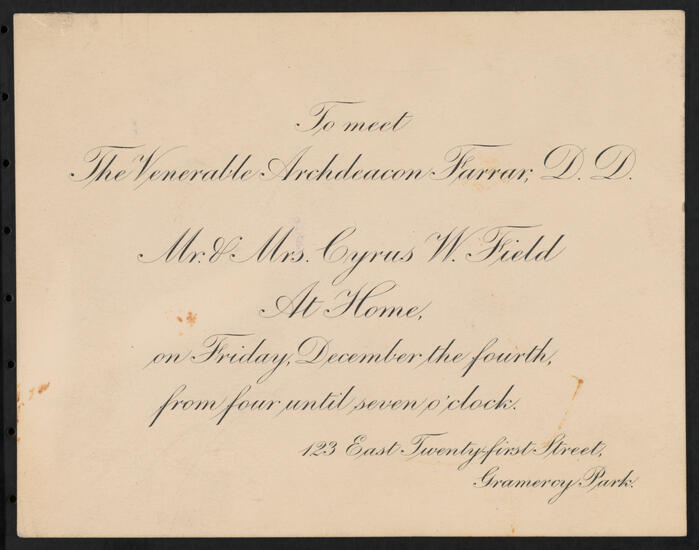 To meet
The Venerable Archdeacon Farrar, D. D.
Mr. & Mrs. Cyrus W. Field
At Home,
on Friday, December the fourth,
from four until seven o'clock.
123 East Twenty-first Street,
Gramercy Park.